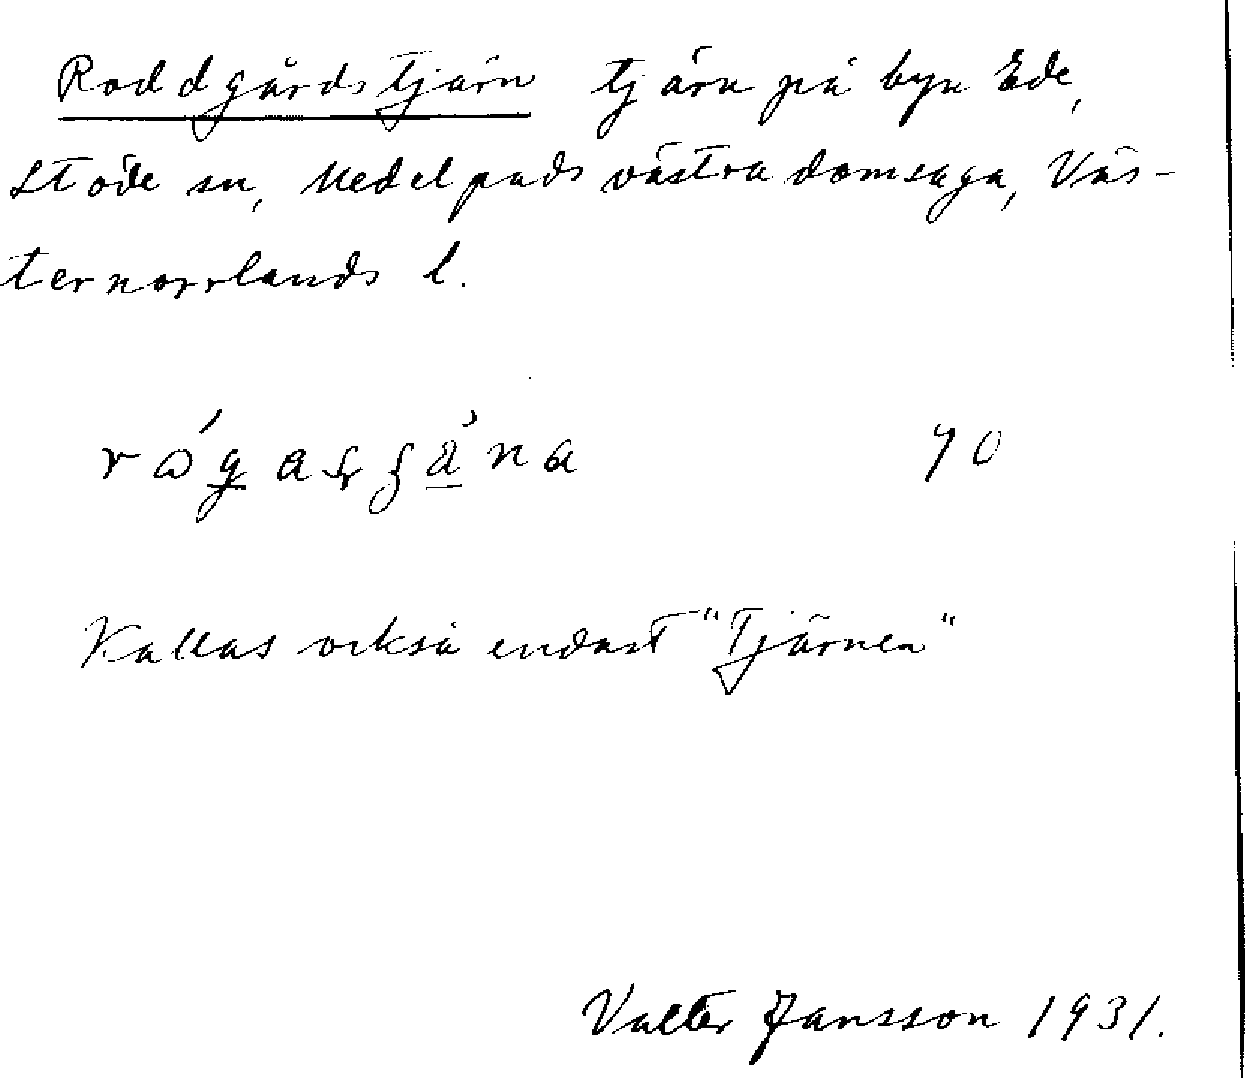 Roddgårdstjärn tjärn på byn Ede,
Stöde sn, Medelpads västra domsaga, Väs-
ternorrlands l.
70
Kallas också endast "Tjärnen"
Valter Jansson 1931.